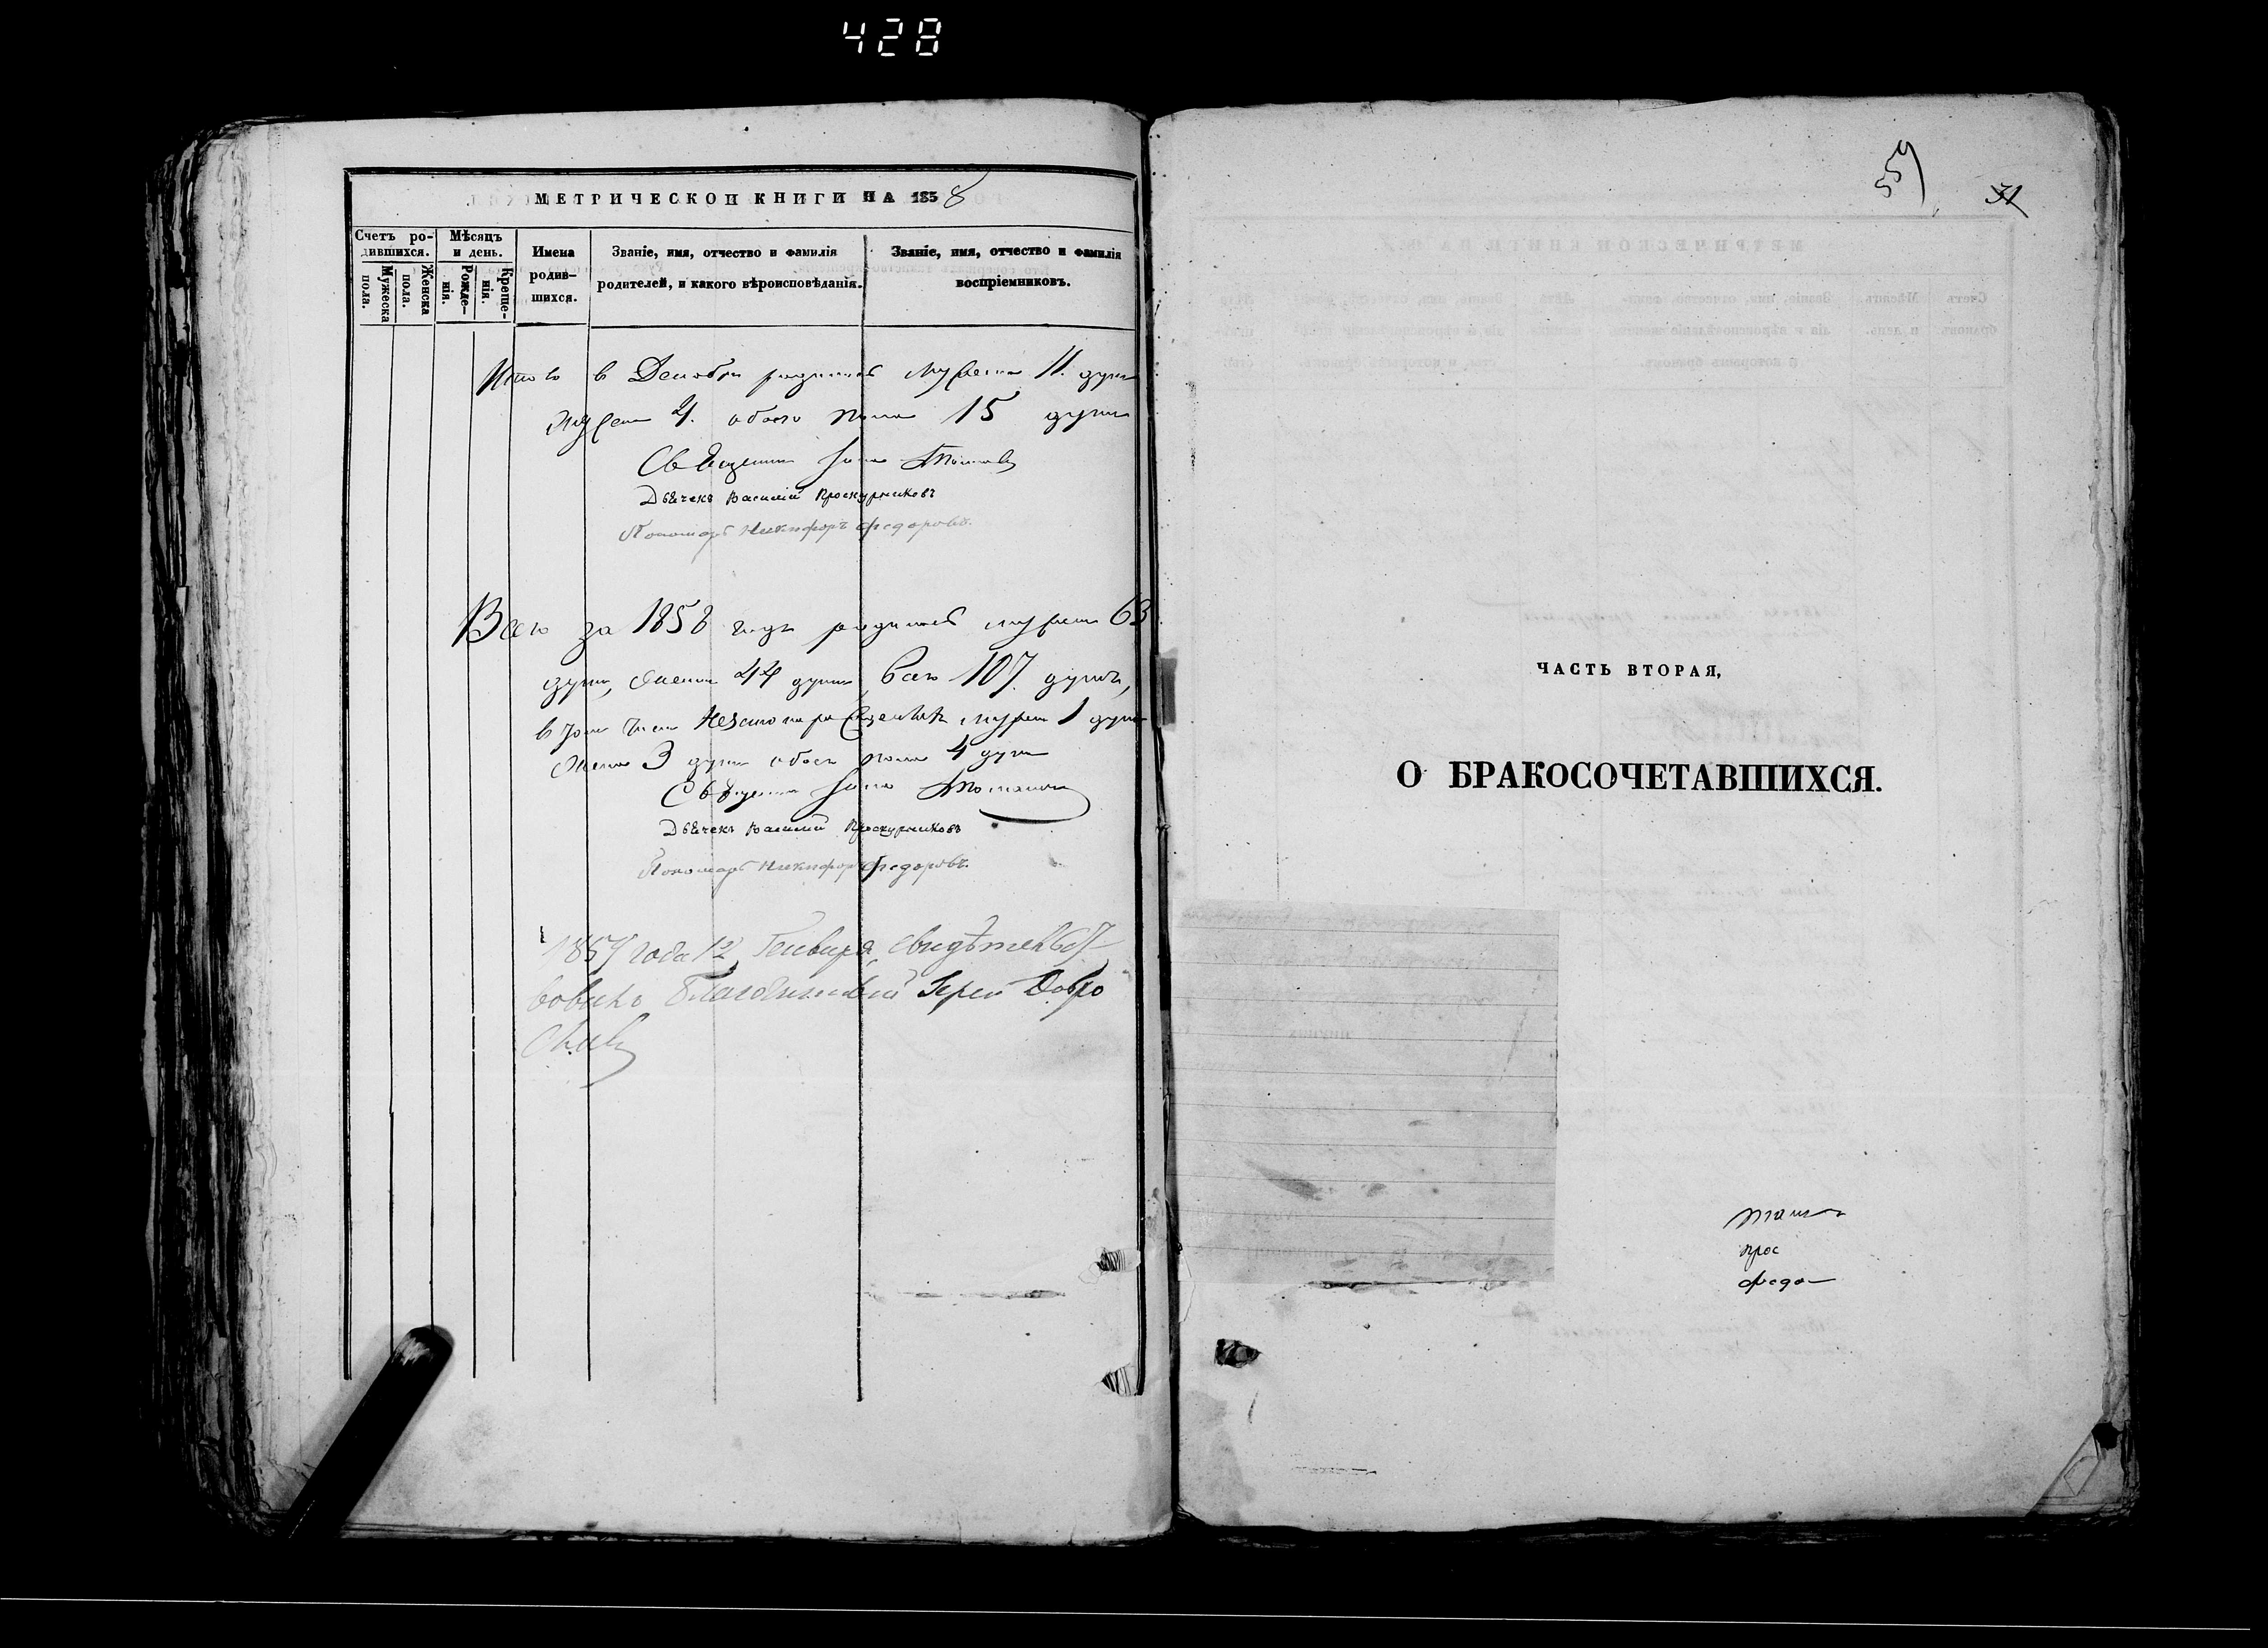 428
МЕТРИЧЕСКОЙ КНИГИ НА 1858
Счетъ ро-
дившихся.
Мужеска
пола.
Женска
пола.
Мѣсяцъ
и день.
Рожде-
нія.
Креще-
нія.
Имена
родив-
шихся.
Званіе, имя, отчество и фамилія
родителей, и какого вѣроисповѣданія.
Званіе, имя, отчество и фамилія
воспріемниковъ.
Итого в Декабрѣ родилось Мужеска 11 душъ
4. обоего пола 15 душъ
Священникъ
Дьячекъ Василій Проскурниковъ
Пономарь Никифоръ Федоровъ.
Всего за 1858 годъ родилось мужеска 63
душъ, женска 44 душъ всего 107. душъ,
в том числе незаконнорожденныхъ мужеска 1 душа
женска 3 души обоего пола 4 души
Священникъ
Дьячекъ Василій Проскурниковъ
Пономарь Никифоръ Федоровъ.
1859 года 12 Генваря, свидѣтельст-
вовалъ Благочинный Іерей
559
31
ЧАСТЬ ВТОРАЯ,
О БРАКОСОЧЕТАВШИХСЯ.
прос
федо